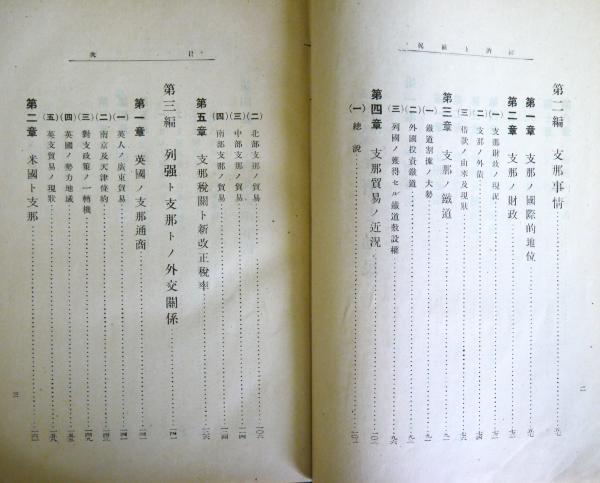 第二編 支那事情
第一章 支那ノ國際的地位
第二章 支那ノ財政
(一) 支那財政ノ現況
(二) 支那ノ外債
(三) 借款ノ由來及現狀
第三章 支那ノ鐵道
(一) 鐵道割讓ノ大勢
(二) 外國投資鐵道
(三) 列國ノ獲得セル鐵道敷設權
第四章 支那貿易ノ近況
(一) 總說
二
目次
(二) 北部支那ノ貿易
(三) 中部支那ノ貿易
(四) 南部支那ノ貿易
第五章 支那稅關ト新改正稅率
第三編 列强ト支那トノ外交關係
第一章 英國ノ支那通商
(一) 英人ノ廣東貿易
(二) 南京及天津條約
(三) 對支政策ノ一轉機
(四) 英國ノ勢力地域
(五) 英支貿易ノ現狀
第二章 米國ト支那
三